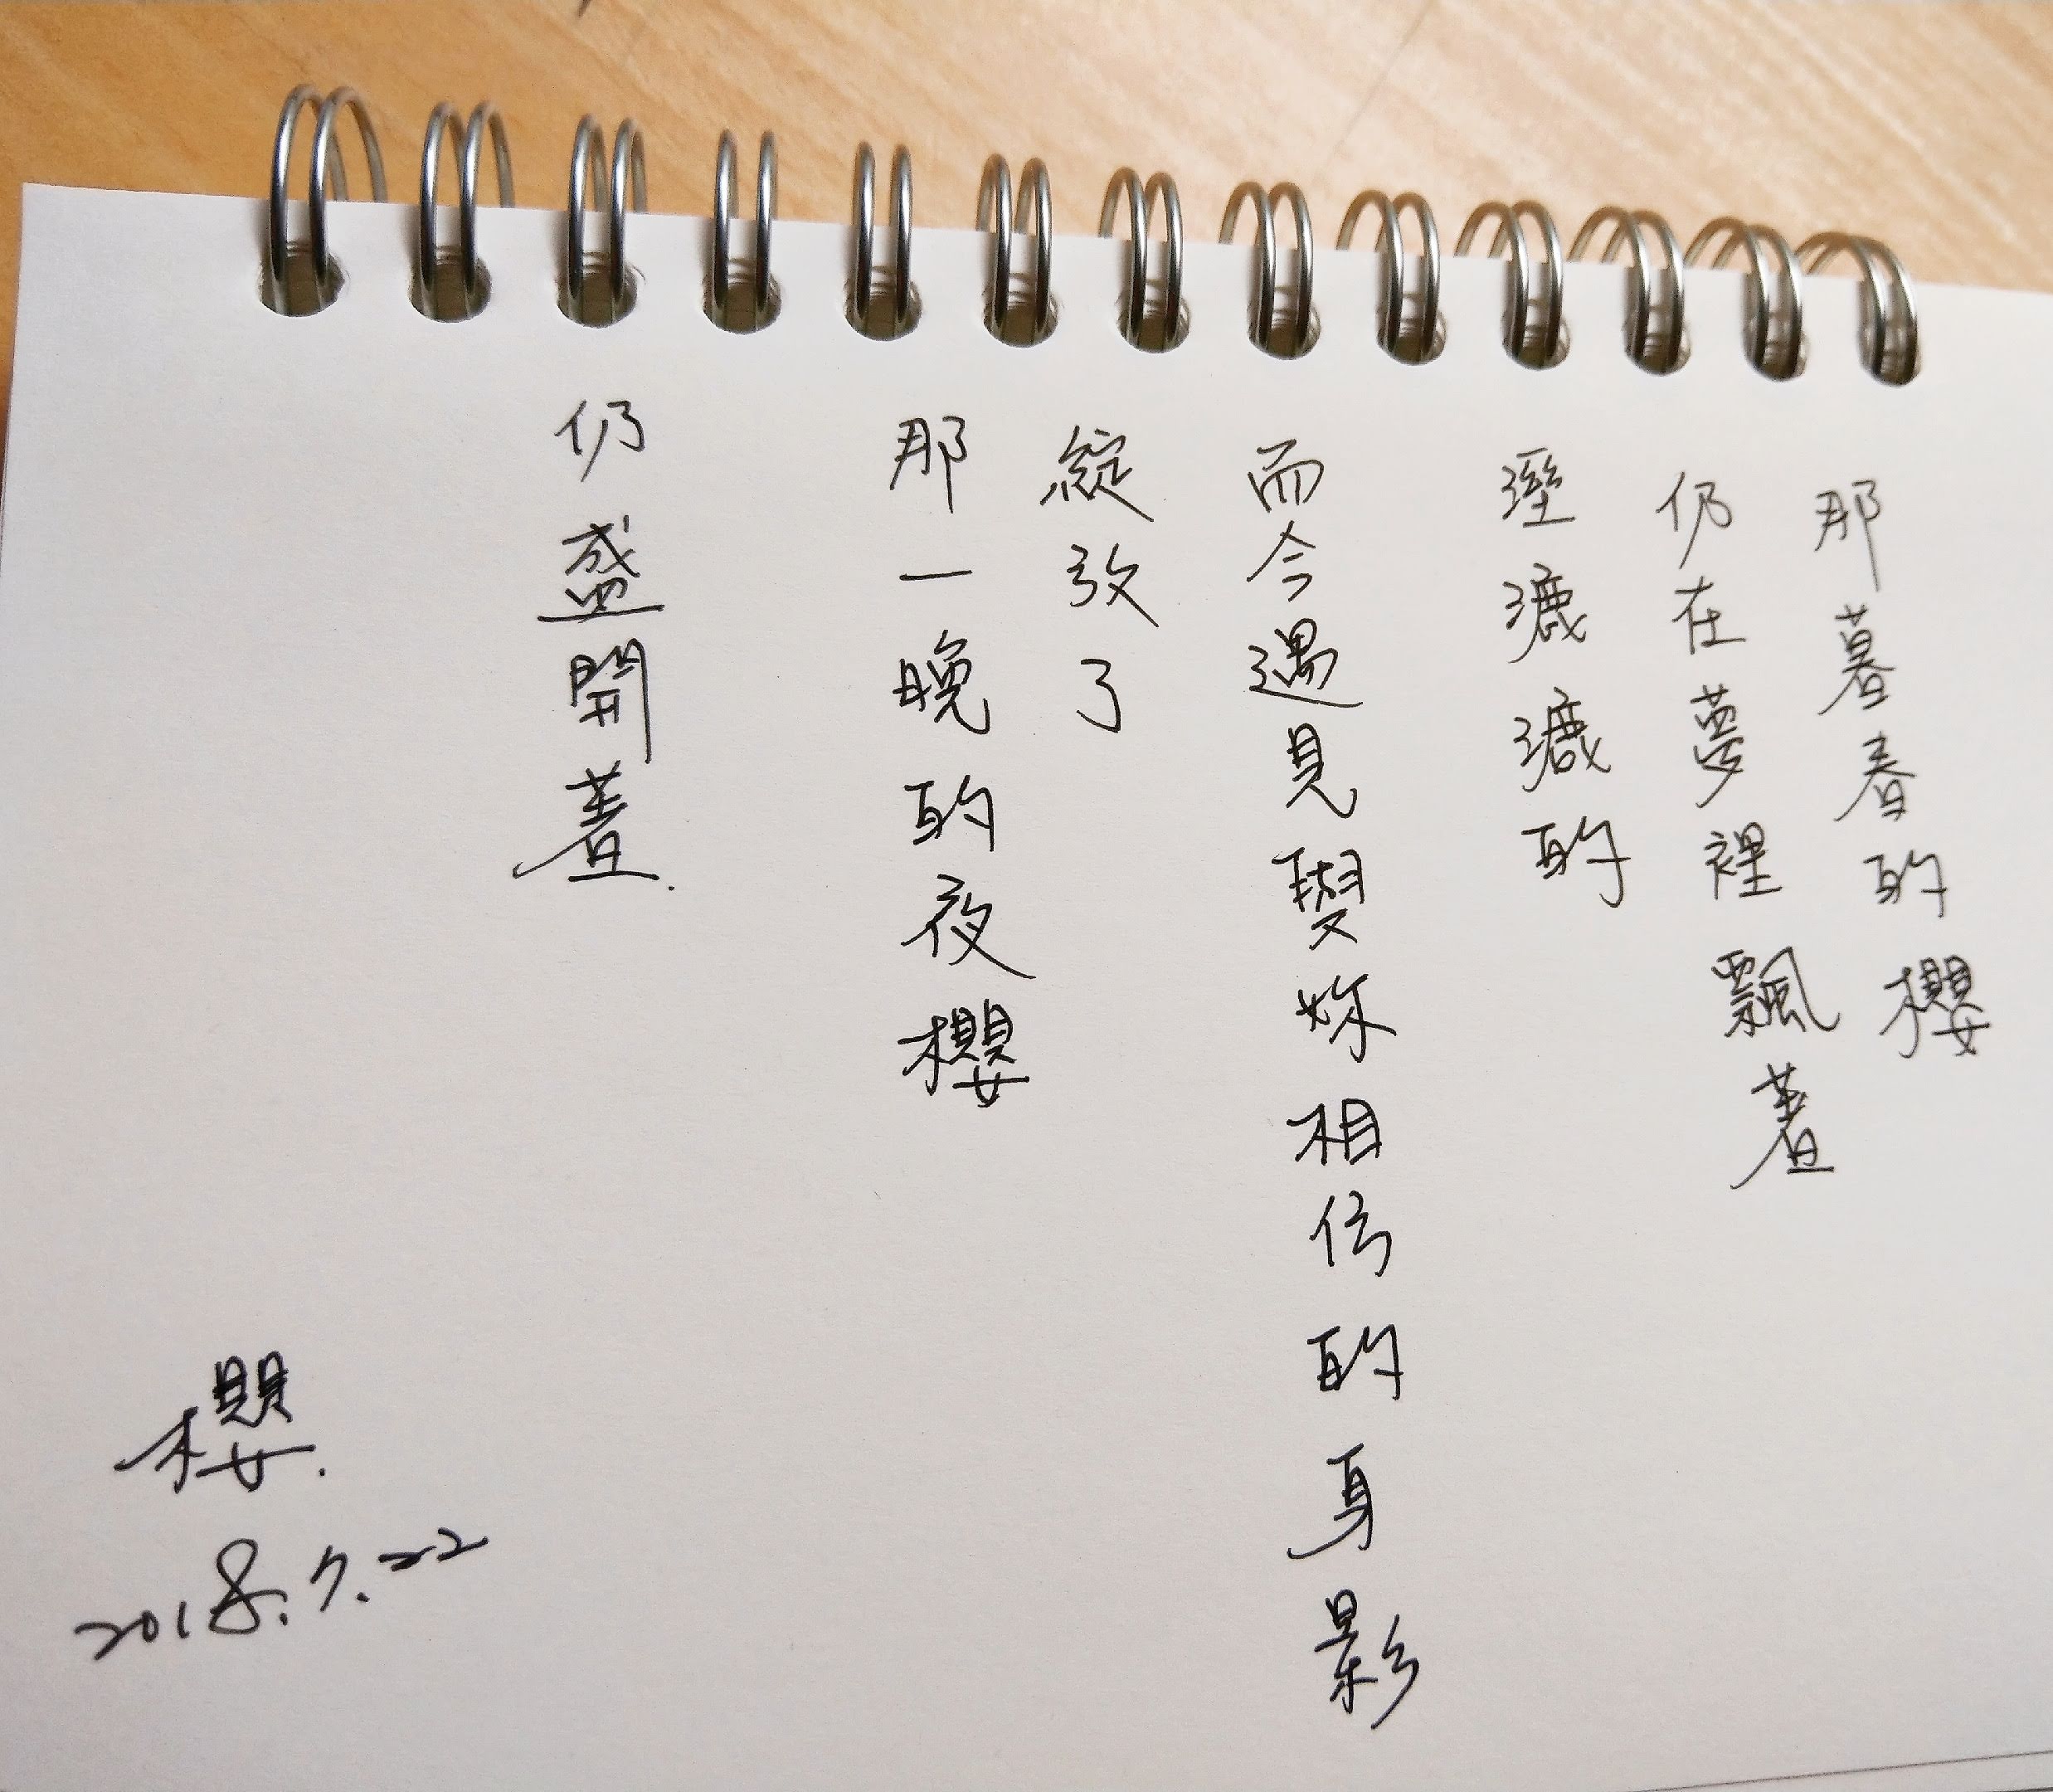 那暮春的櫻
仍在夢裡飄著
溼漉漉的
而今遇見與妳相仿的身影
綻放了
那一晚的夜櫻
仍盛開著.
櫻.
2018.7.22